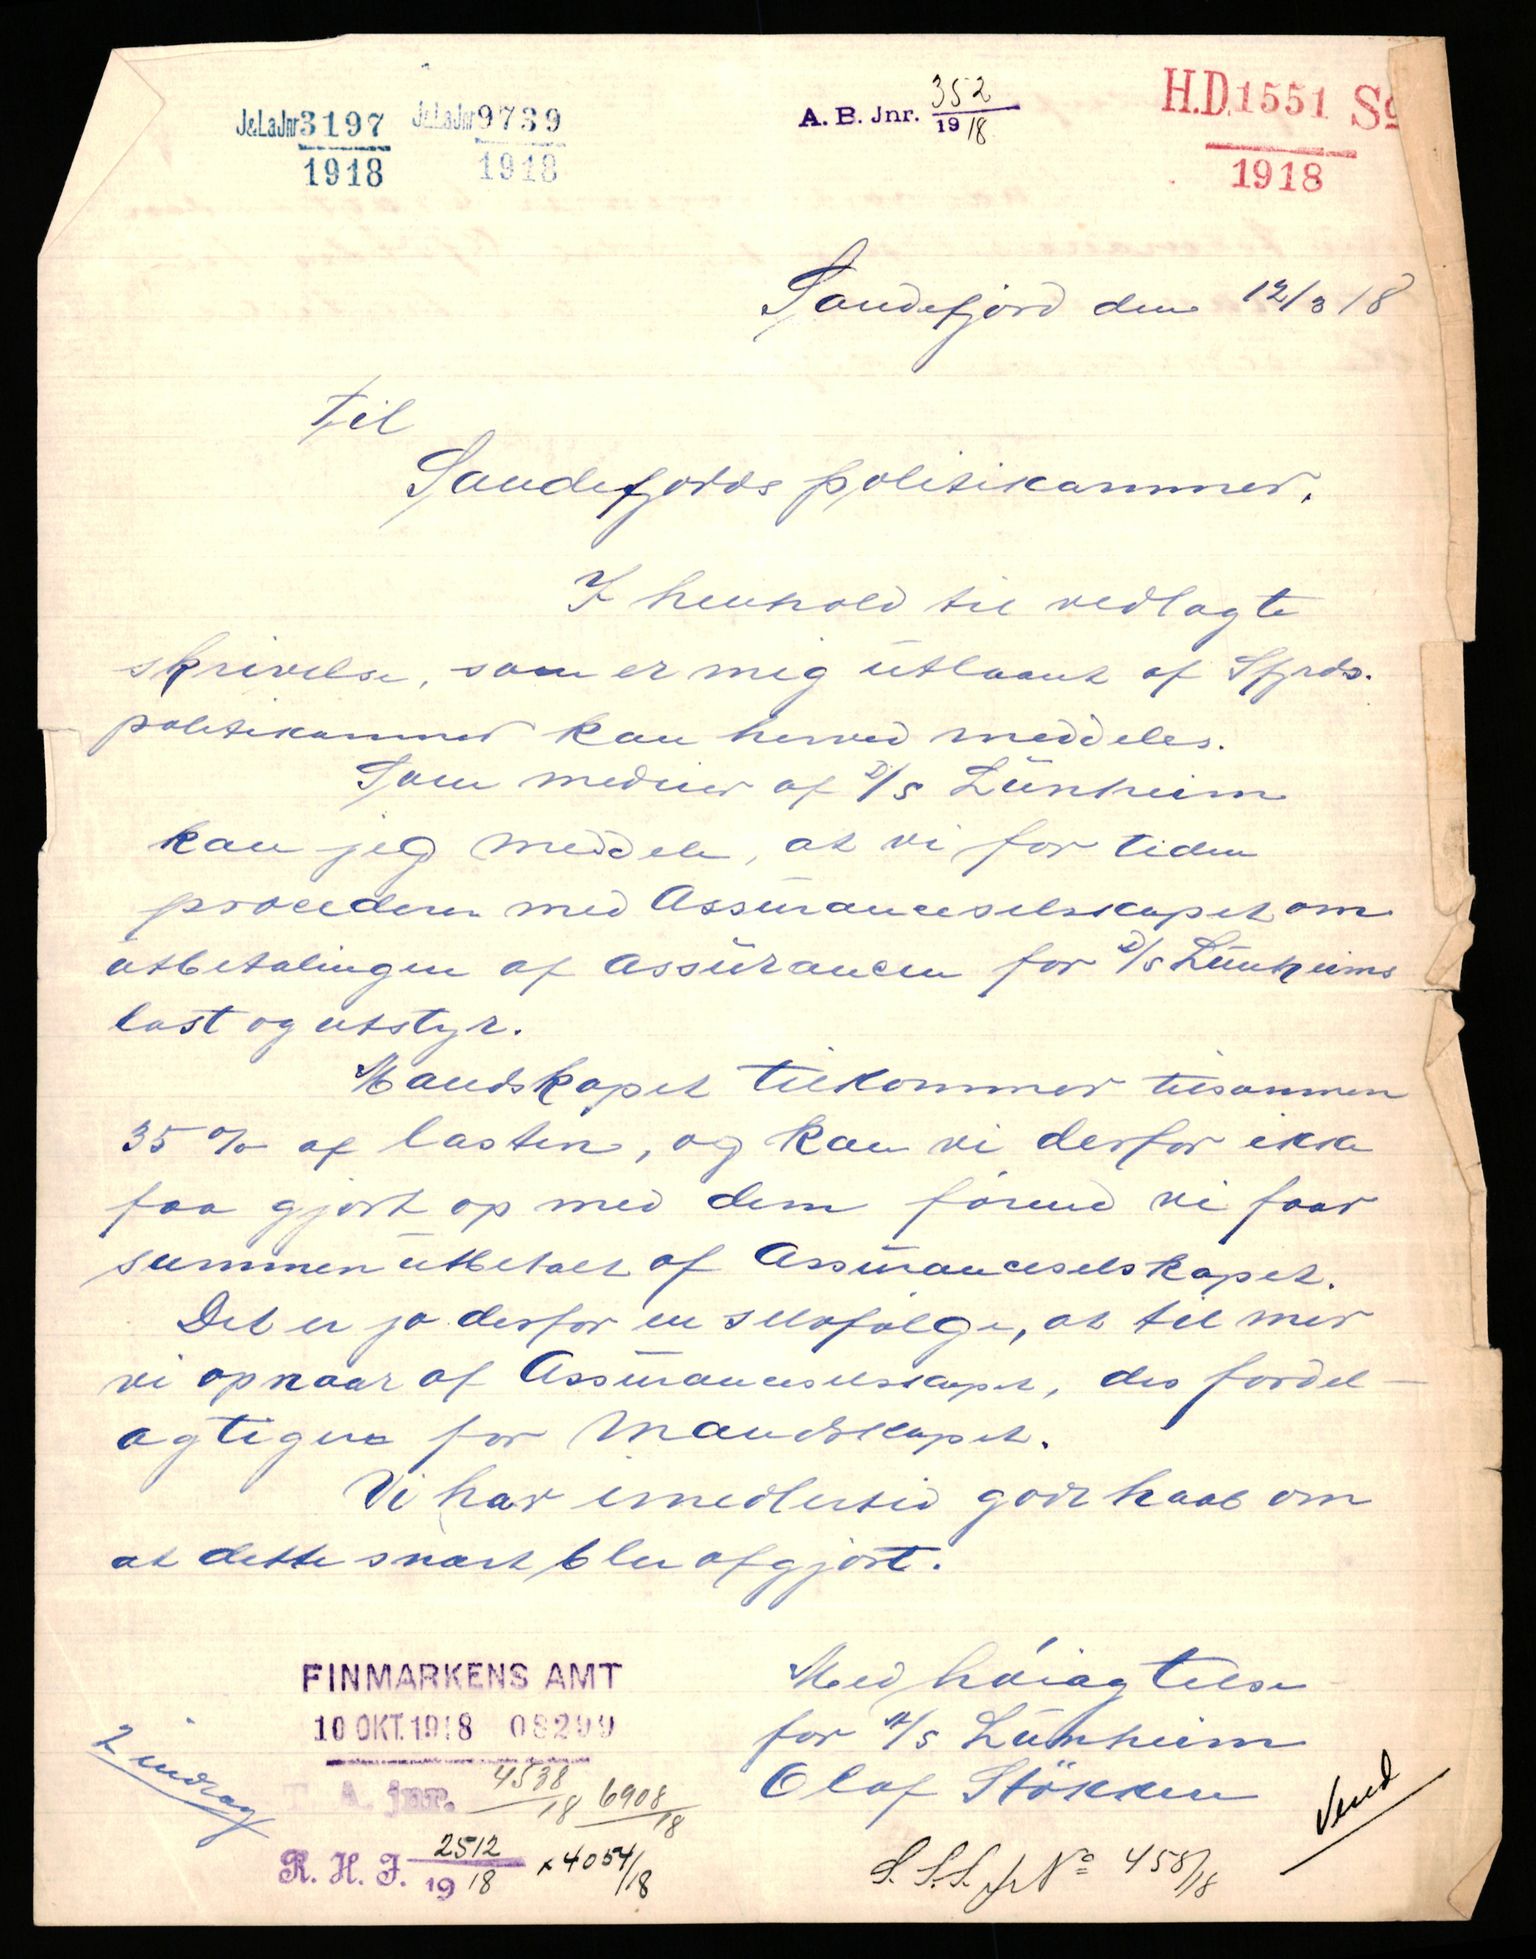 J&LaJnr 3197
1918
J&LaJnr 9739
1918
A. B. Jnr. 352
1918
H.D. 1551 Sø
1918
Sandefjord den 12/3 18
Til
Sandefjords politikammer.
I henhold til vedlagte
skrivelse, som er mig utlaant af Sfjrds.
politikammer kan herved meddeles.
Som medeier af D/S Lünheim
kan jeg meddele, at vi for tiden
procederer med Assüranceselskapet om
utbetalingen af Assürancen for D/S Lünheims
last og utstyr.
Mandskapet tilkommer tilsammen
35 % af lasten, og kan vi derfor ikke
faa gjort op med dem förend vi faar
summen ütbetalt af Assüranceselskapet.
Det er jo derfor en selvfölge, at til mer
vi opnaar af Assüranceselskapet, des fordel-
agtigere for Mandskapet.
Vi har imedlertid godt haab om
at dette snart blir afgjort.
Med höiagtelse
for A/S Lünheim
Olaf Stökken
FINMARKENS AMT
10 OKT. 1918 08299
T. A. jnr. 4538/18 6908/18
R. H. J. 2512/1918 x 4054/18
2 indrag
S. S. S. jr No 458/18
Vend